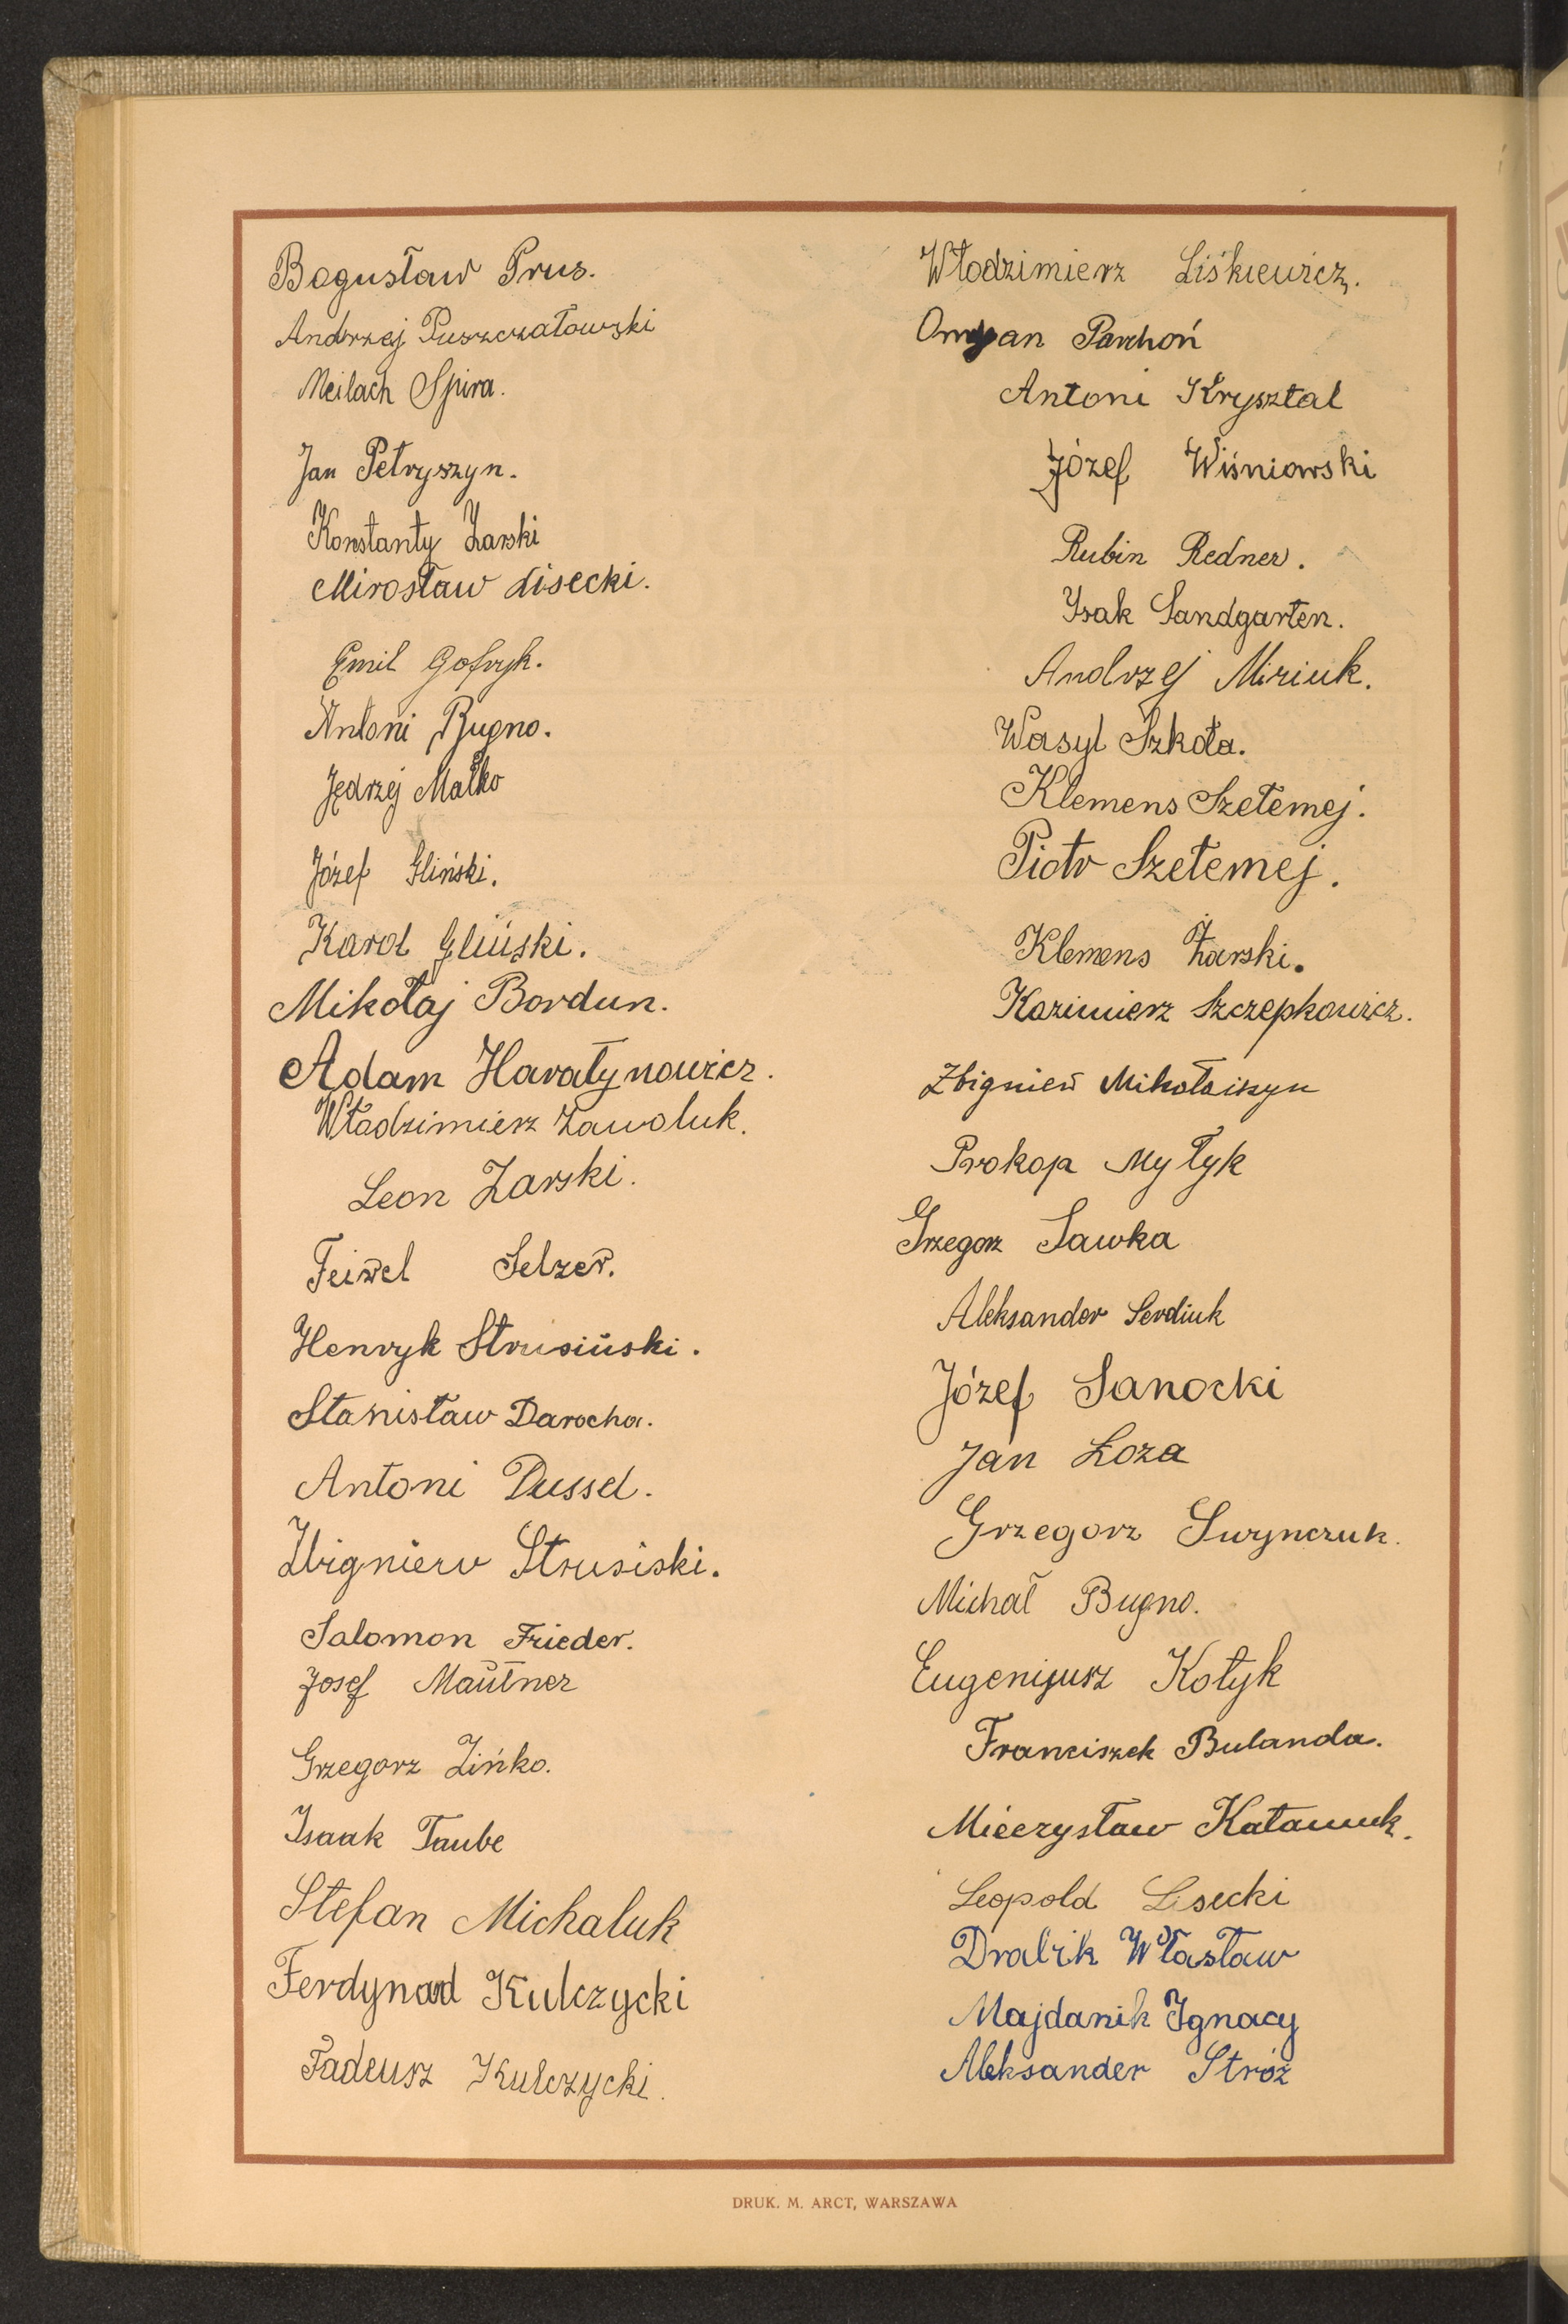 Bogusław Prus.
Andrzej Puszczałowski
Meilach Spira.
Jan Petryszyn.
Konstanty Żarski
Mirosław Lisecki.
Emil Gofryk.
Antoni Bugno.
Jędrzej Małko
Józef Gliński.
Karol Gliński.
Mikołaj Bordun.
Adam Haratynowicz.
Władzimierz Zawoluk.
Leon Żarski.
Feiwel Selzer.
Henryk Strusiński.
Stanisław Darocha.
Antoni Dussel.
Zbigniew Strusiski.
Salomon Frieder.
Josef Mautner
Grzegorz Zińko.
Isaak Taube
Stefan Michaluk
Ferdynad Kulczycki
Tadeusz Kulczycki.
Włodzimierz Liśkiewicz.
Parchoń
Antoni Kryształ
Józef Wiśniowski
Rubin Redner.
Isak Sandgarten.
Andrzej Miriuk.
Wasyl Szkoła.
Klemens Szetemej.
Piotr Szetemej.
Klemens Żarski.
Kazimierz Szczepkowicz.
Zbigniew Mikołaiszyn
Prokop Mytyk
Grzegorz Sawka
Aleksander Serdiuk
Józef Sanocki
Jan Łoza
Grzegorz Swynczuk.
Michał Bugno.
Eugenijusz Kotyk
Franciszek Bulanda.
Mieczysław
Leopold Lisecki
Dralik Własław
Majdanik Ignacy
Aleksander Stróż
DRUK. M. ARCT, WARSZAWA